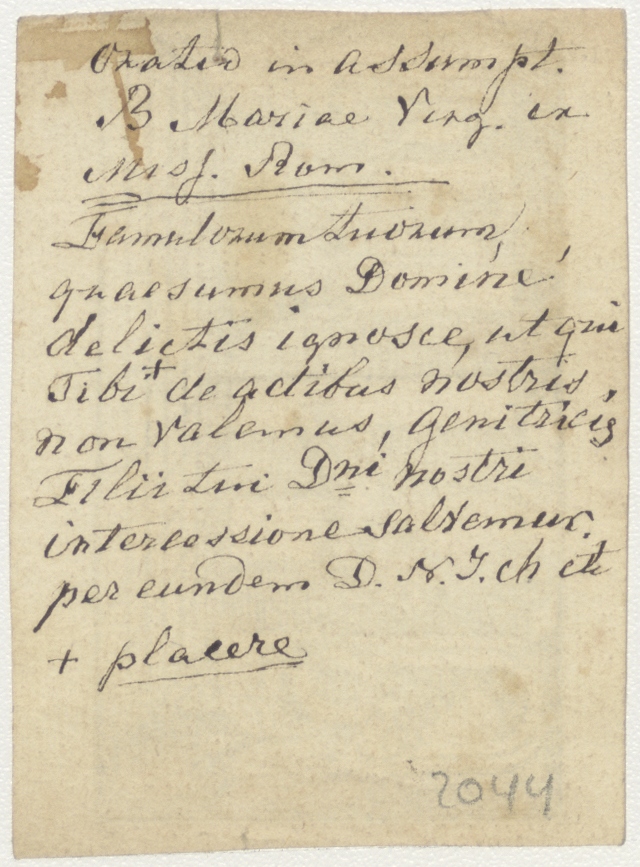 Oratio in assumpt.
B Mariae Virg. ex
Miss. Rom.
Famulorum tuorum,
quaesumus Domine
delictis ignosce, ut qui
Tibi + de actibus nostris
non valemus, genitricis
Filii tui Dni nostri
intercessione salvemur.
per eundem D. N. J. ch etc
+ placere
2044